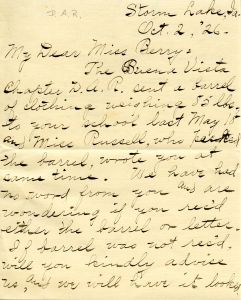 D.A.R.
Storm Lake, Ia.
Oct. 2, '26.
My Dear Miss Berry:
The Buena Vista
Chapter D.A.R. sent a barrel
of clothing weighing 85 lbs.
to your school last May 18th
and Miss Russell, who packed
the barrel, wrote you at
same time. We have had
no word from you and are
wondering if you rec'd
either the barrel or letter.
If barrel was not rec'd,
will you kindly advise
us, and we will have it looked